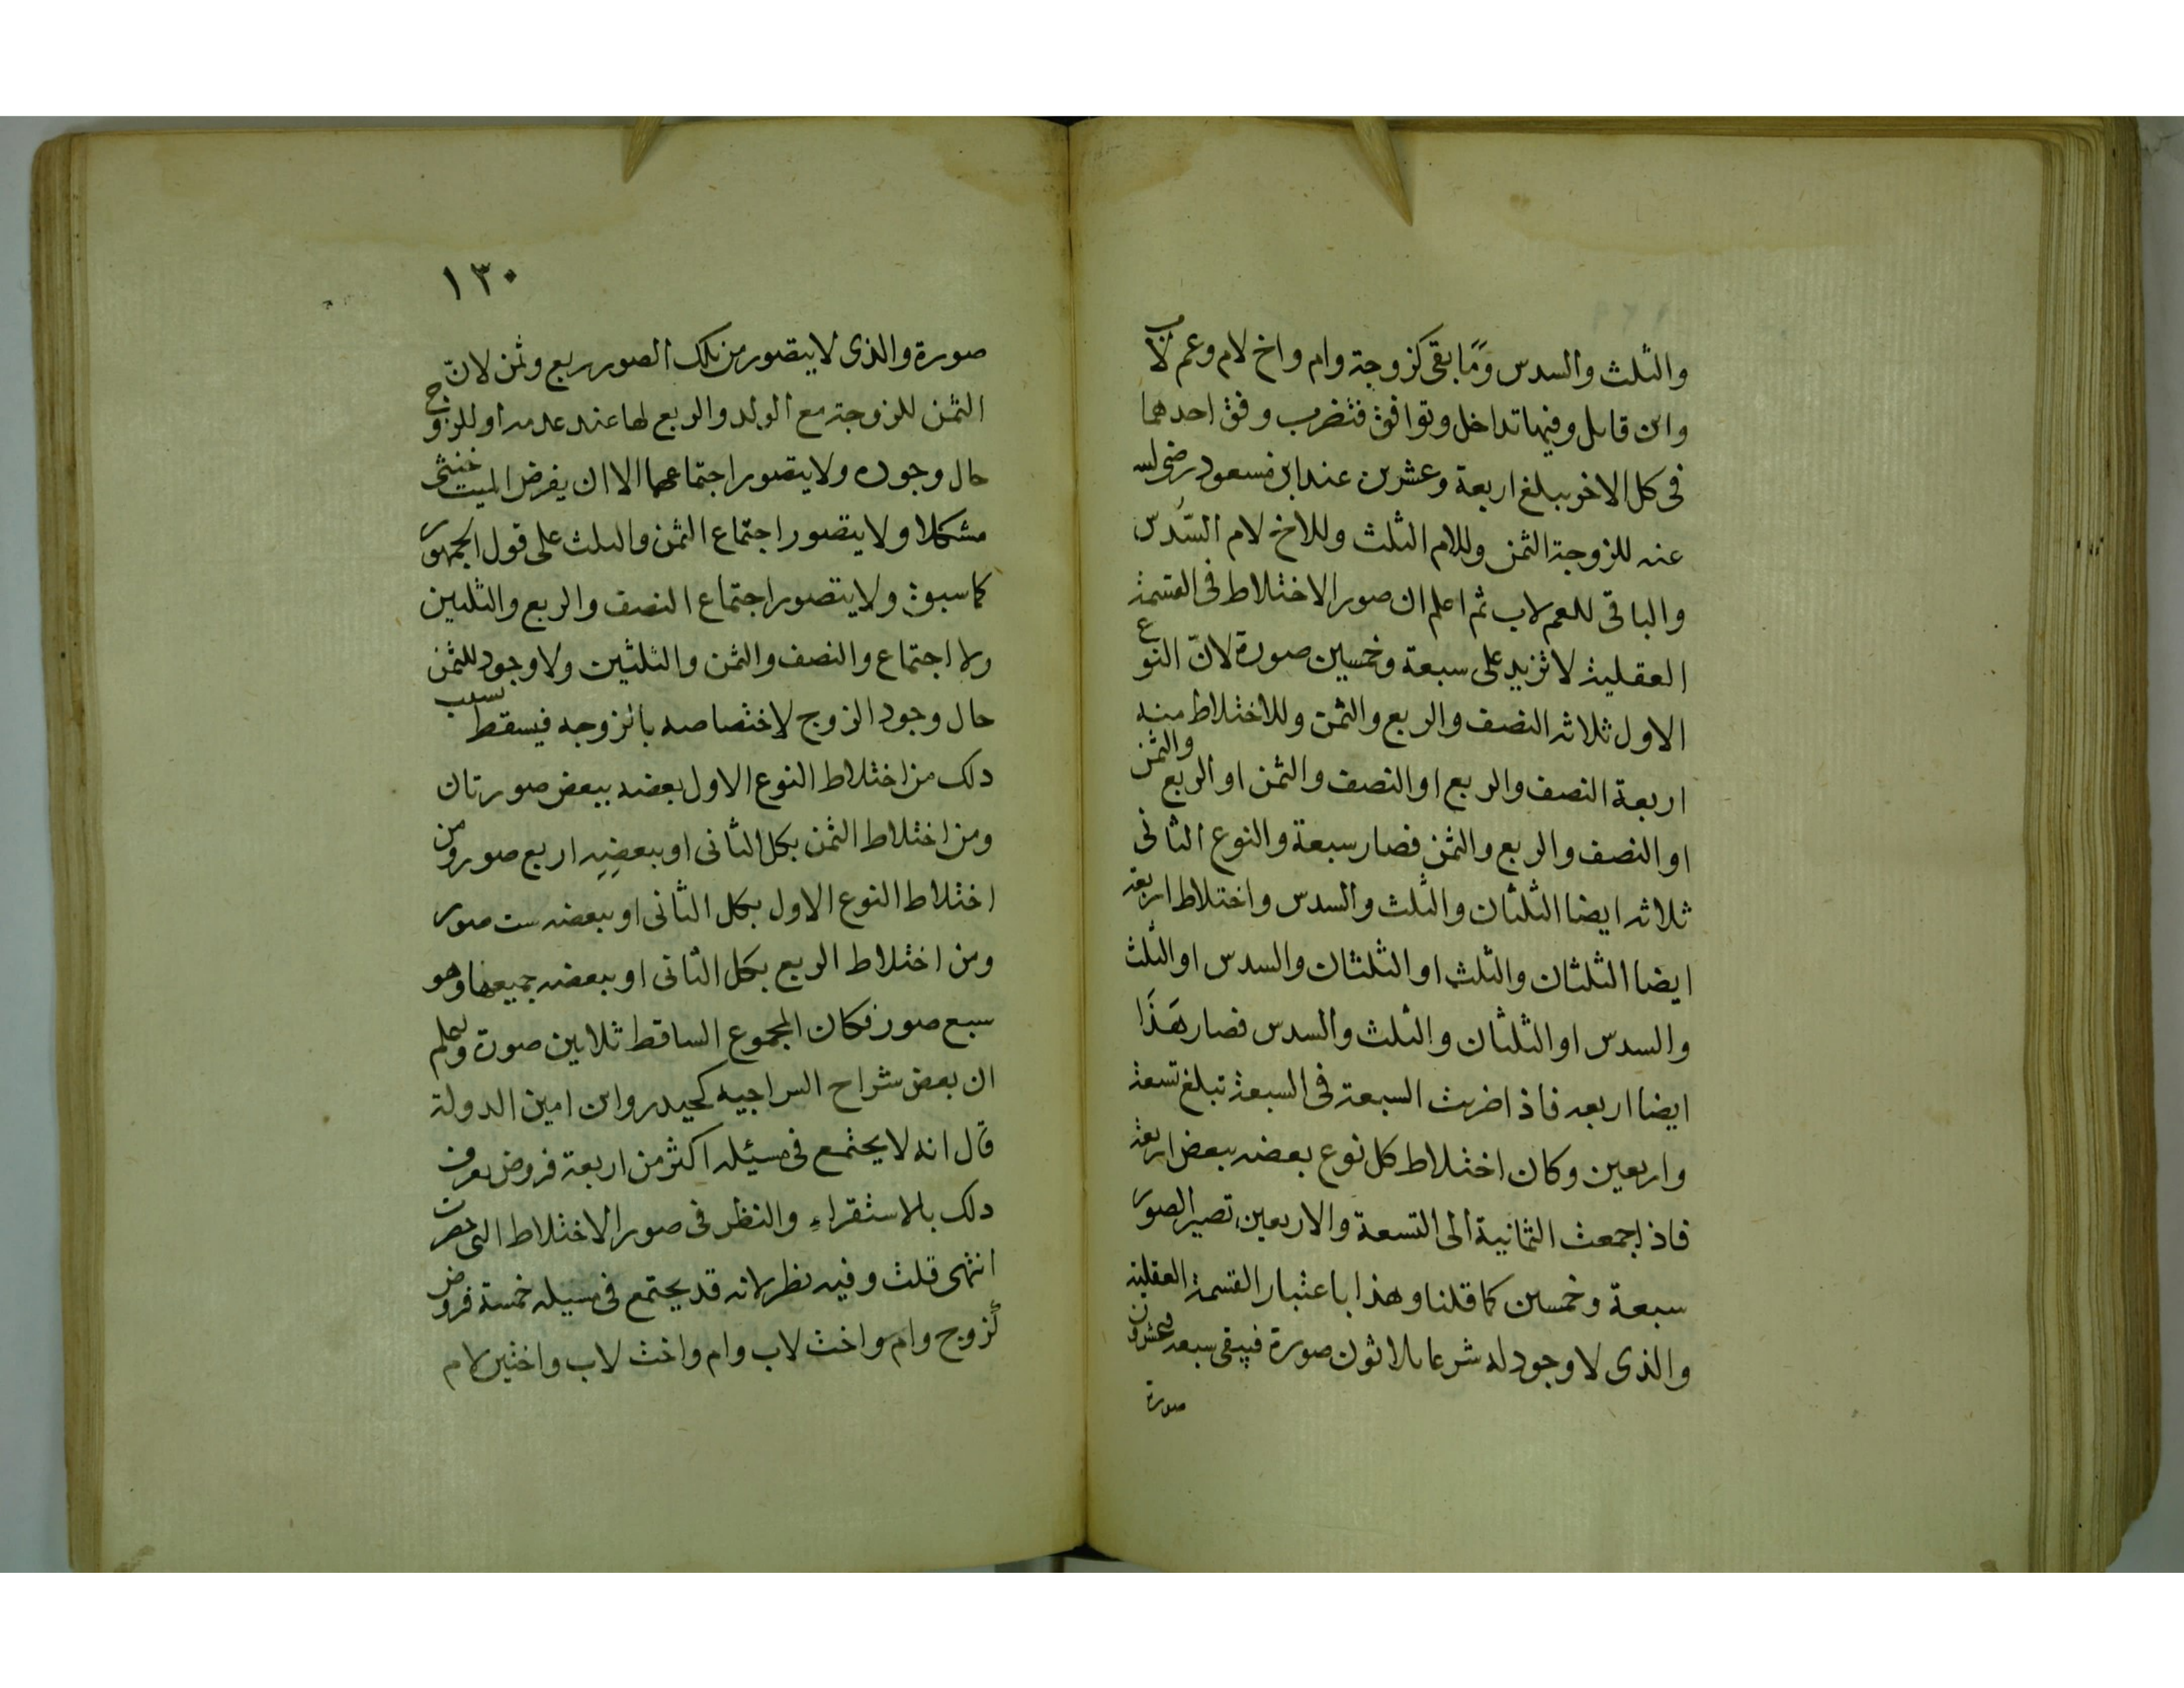 والثلث والسدس وما بقى كزوجة وام واخ لام وعم لاب
وابن قاتل وفيها تداخل وتوافق فتضرب وفق احدهما
فى كل الاخر يبلغ اربعة وعشرين عند ابن مسعود رضى الله
عنه للزوجة الثمن وللام الثلث وللاخ لام السُّدس
والباقى للعم لاب ثم اعلم ان صور الاختلاط فى القسمة
العقلية لا تزيد على سبعة وخمسين صورة لانّ النوع
الاول ثلاثة النصف والربع والثمن وللاختلاط منه
اربعة النصف والربع او النصف والثمن او الربع والثمن
او النصف والربع والثمن فصار سبعة والنوع الثانى
ثلاثة ايضا الثلثان والثلث والسدس واختلاط اربعة
ايضا الثلثان والثلث او الثلثان والسدس او الثلث
والسدس او الثلثان والثلث والسدس فصار هَذَا
ايضا اربعه فاذا ضربت السبعة فى السبعة تبلغ تسعة
واربعين وكان اختلاط كل نوع بعضه ببعض اربعة
فاذا جمعت الثمانية الى التسعة والاربعين تصير الصور
سبعة وخمسين كما قلنا وهذا باعتبار القسمة العقلية
والذى لا وجود له شرعا ثلاثون صورة فيبقى سبعه وعشرون
صورة
١٣٠
صورة والذى لا يتصور من تلك الصور ربع وثمن لانّ
الثمن للزوجة مع الولد والربع لها عند عدمه او للزوج
حال وجوده ولا يتصور اجتماعهما الا ان يفرض الميت خنثى
مشكلا ولا يتصور اجتماع الثمن والثلث على قول الجمهور
كما سبق ولا يتصور اجتماع النصف والربع والثلثين
ولا اجتماع والنصف والثمن والثلثين ولا وجود للثمن
حال وجود الزوج لاختصاصه بالزوجه فيسقط بسبب
ذلك من اختلاط النوع الاول بعضه ببعض صورتان
ومن اختلاط الثمن بكل الثانى او ببعضه اربع صور ومن
اختلاط النوع الاول بكل الثانى او ببعضه ست صور
ومن اختلاط الربع بكل الثانى او ببعضه جميعها وهو
سبع صور فكان المجموع الساقط ثلاثين صورة واعلم
ان بعض شراح السراجيه كحيدر وابن امين الدولة
قال انه لا يجتمع فى مسئله اكثر من اربعة فروض يعرف
ذلك بالاستقراء والنظر فى صور الاختلاط التى حصرت
انتهى قلت وفيه نظر لانه قد يجتمع فى مسيله خمسة فروض
كزوج وام واخت لاب وام واخت لاب واختين لام